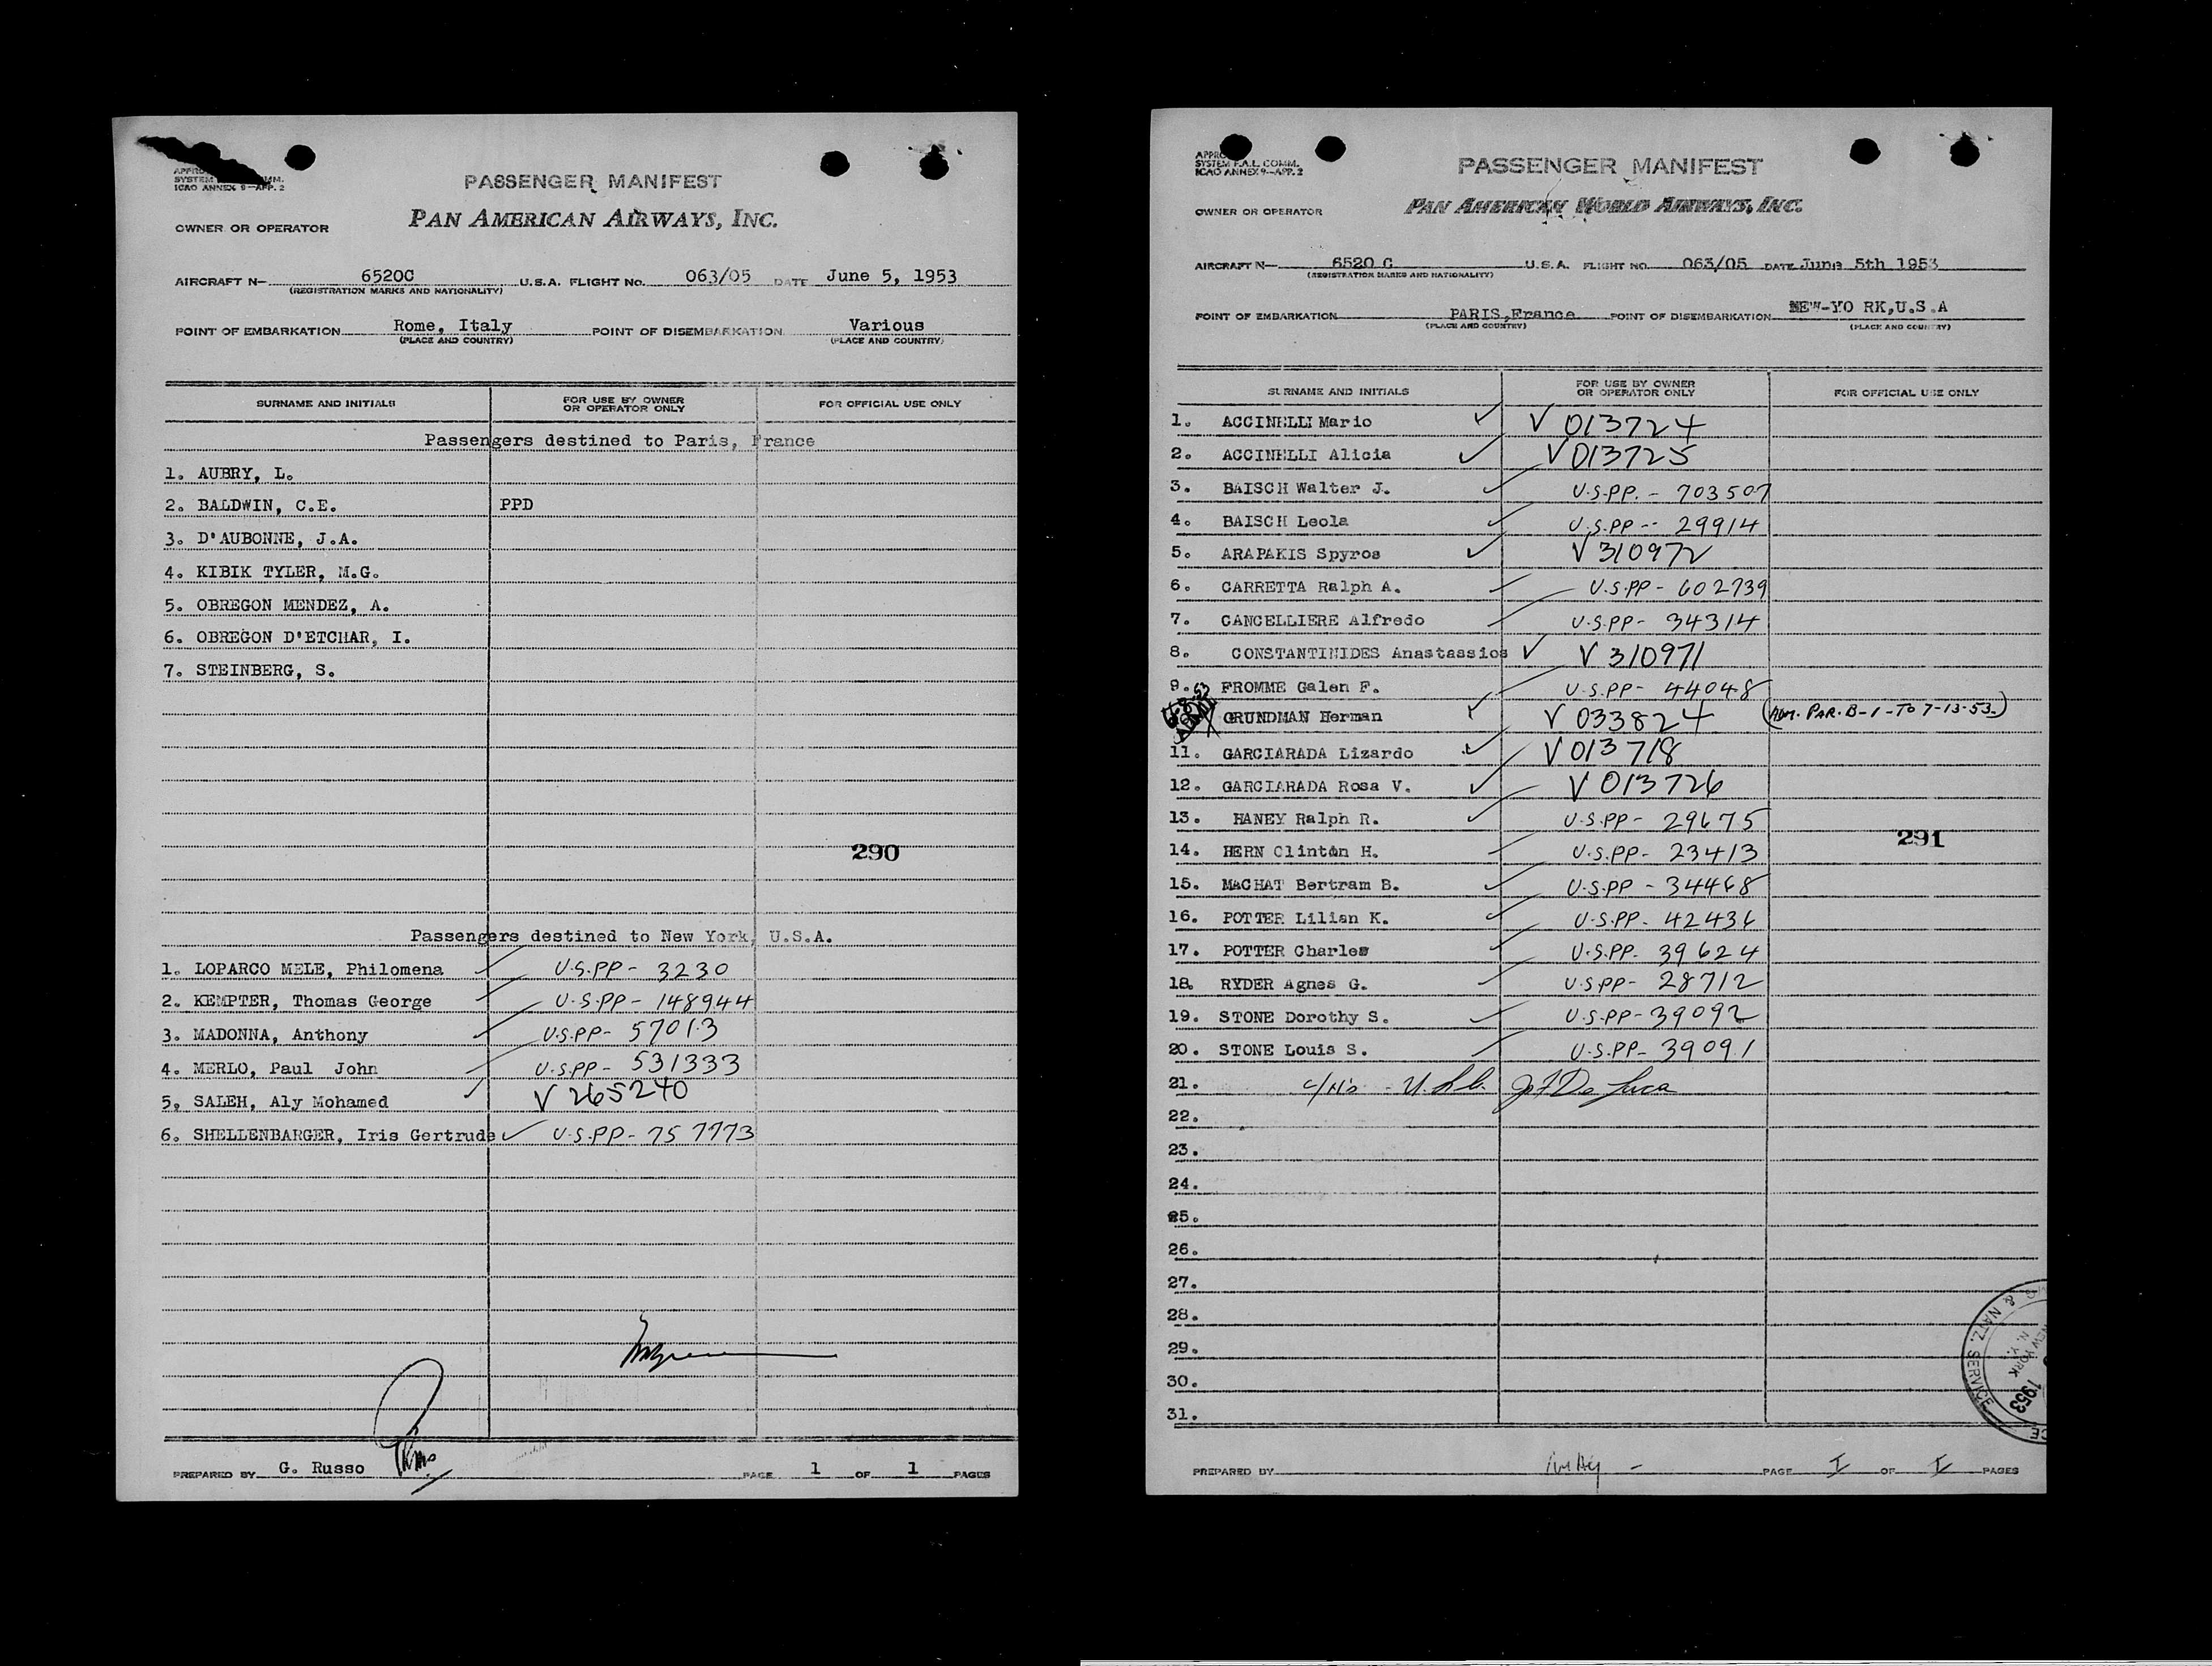 APPRO
SYSTEM MM.
ICAO ANNEX 9—APP. 2
PASSENGER MANIFEST
PAN AMERICAN AIRWAYS, INC.
OWNER OR OPERATOR
AIRCRAFT N— 6520C U.S.A. FLIGHT NO. 063/05 DATE June 5, 1953
(REGISTRATION MARKS AND NATIONALITY)
POINT OF EMBARKATION Rome, Italy POINT OF DISEMBARKATION Various
(PLACE AND COUNTRY) (PLACE AND COUNTRY)
SURNAME AND INITIALS FOR USE BY OWNER OR OPERATOR ONLY FOR OFFICIAL USE ONLY
Passengers destined to Paris, France
1. AUBRY, L.
2. BALDWIN, C.E. PPD
3. D'AUBONNE, J.A.
4. KIBIK TYLER, M.G.
5. OBREGON MENDEZ, A.
6. OBREGON D'ETCHAR, I.
7. STEINBERG, S.
290
Passengers destined to New York, U.S.A.
1. LOPARCO MELE, Philomena U.S.PP - 3230
2. KEMPTER, Thomas George U.S.PP - 148944
3. MADONNA, Anthony U.S.PP- 57013
4. MERLO, Paul John U.S.PP- 531333
5. SALEH, Aly Mohamed V 265240
6. SHELLENBARGER, Iris Gertrude U.S.PP- 757773
PREPARED BY G. Russo PAGE 1 OF 1 PAGES
APPRO
SYSTEM F.A.L. COMM.
ICAO ANNEX 9—APP. 2
PASSENGER MANIFEST
PAN AMERICAN WORLD AIRWAYS, INC.
OWNER OR OPERATOR
AIRCRAFT N— 6520 C U.S.A. FLIGHT NO. 063/05 DATE June 5th 1953
(REGISTRATION MARKS AND NATIONALITY)
POINT OF EMBARKATION PARIS,France POINT OF DISEMBARKATION NEW-YO RK,U.S.A
(PLACE AND COUNTRY) (PLACE AND COUNTRY)
SURNAME AND INITIALS FOR USE BY OWNER OR OPERATOR ONLY FOR OFFICIAL USE ONLY
1. ACCINELLI Mario V 013724
2. ACCINELLI Alicia V 013725
3. BAISCH Walter J. U.S.PP. - 703507
4. BAISCH Leola U.S.PP -- 29914
5. ARAPAKIS Spyros V 310972
6. CARRETTA Ralph A. U.S.PP - 602739
7. CANCELLIERE Alfredo U.S.PP- 34314
8. CONSTANTINIDES Anastassios V 310971
9. FROMME Galen F. U.S.PP- 44048
GRUNDMAN Herman V 033824 (ADM. PAR. B-1-TO 7-13-53.)
11. GARCIARADA Lizardo V 013718
12. GARCIARADA Rosa V. V 013726
13. HANEY Ralph R. U.S.PP- 29675
14. HERN Clinton H. U.S.PP- 23413
291
15. MACHAT Bertram B. U.S.PP - 34468
16. POTTER Lilian K. U.S.PP. 42436
17. POTTER Charles U.S.PP. 39624
18. RYDER Agnes G. U.S.PP- 28712
19. STONE Dorothy S. U.S.PP- 39092
20. STONE Louis S. U.S.PP- 39091
21.
22.
23.
24.
25.
26.
27.
28.
29.
30.
31.
& NATZ. SERVICE
NEW YORK
N. Y.
1953
PREPARED BY PAGE I OF I PAGES